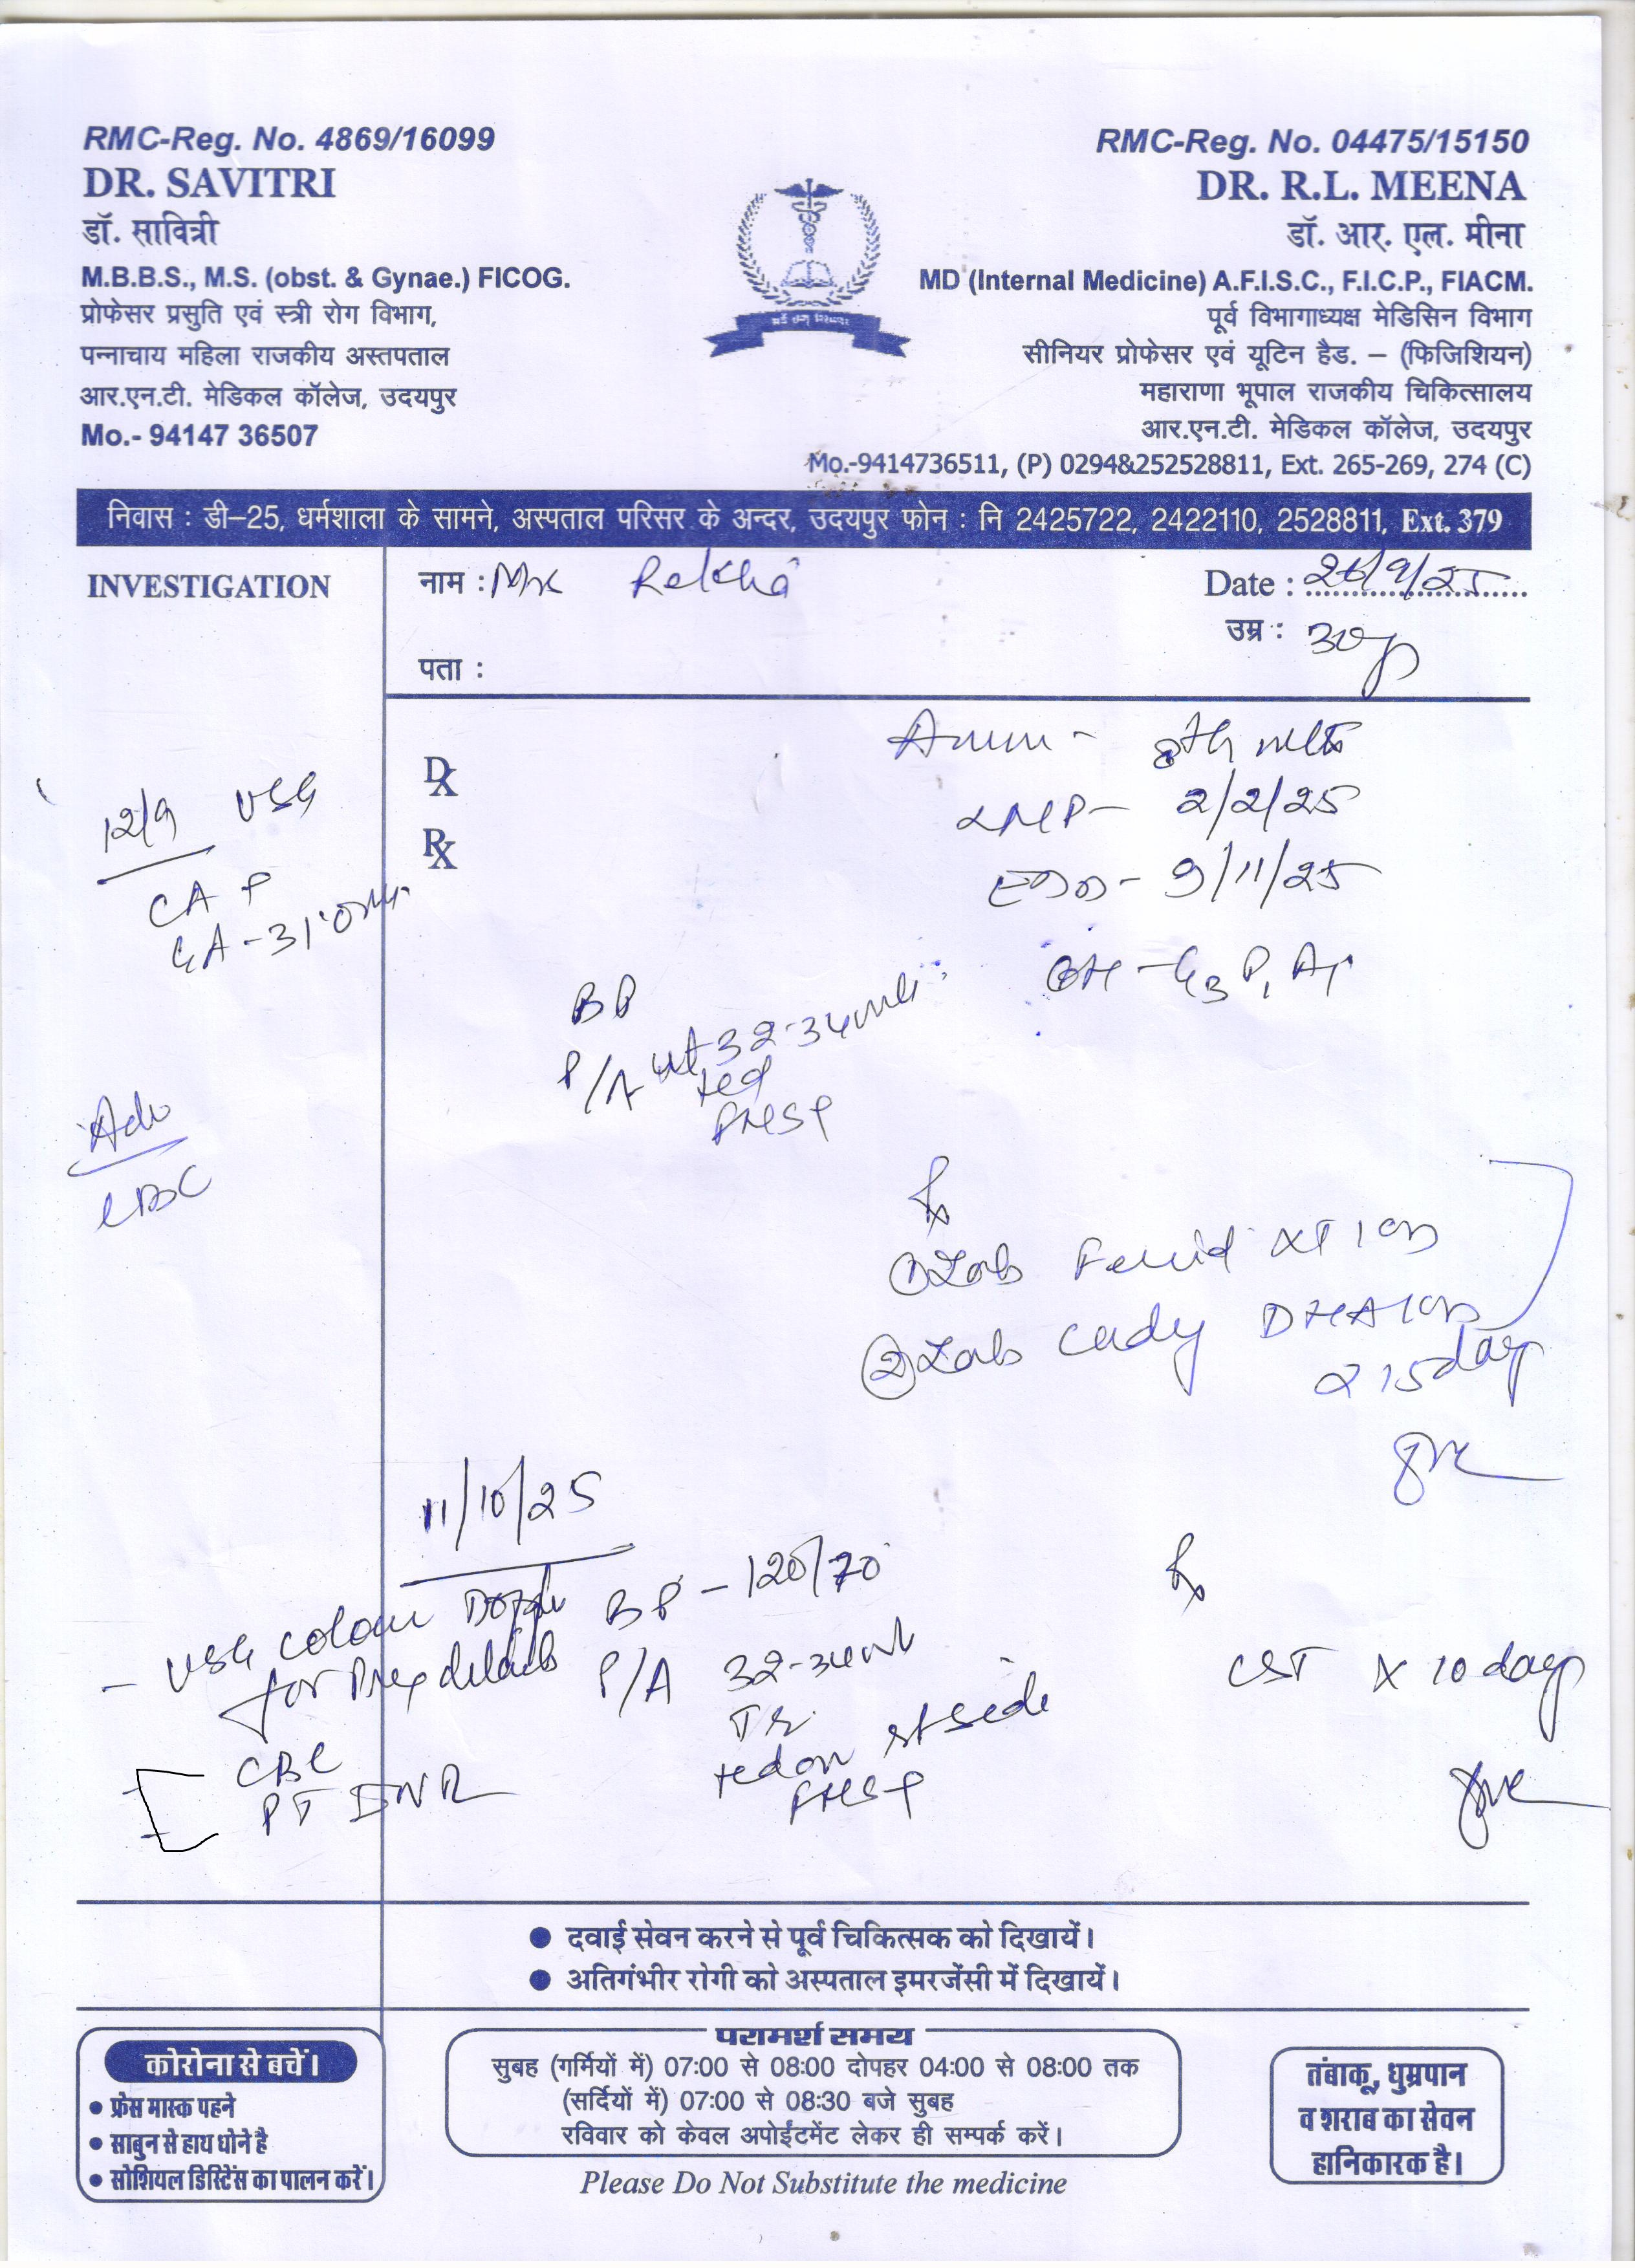 RMC-Reg. No. 4869/16099
DR. SAVITRI
डॉ. सावित्री
M.B.B.S., M.S. (obst. & Gynae.) FICOG.
प्रोफेसर प्रसुति एवं स्त्री रोग विभाग,
पन्नाचाय महिला राजकीय अस्तपताल
आर.एन.टी. मेडिकल कॉलेज, उदयपुर
Mo.- 94147 36507
RMC-Reg. No. 04475/15150
DR. R.L. MEENA
डॉ. आर. एल. मीना
MD (Internal Medicine) A.F.I.S.C., F.I.C.P., FIACM.
पूर्व विभागाध्यक्ष मेडिसिन विभाग
सीनियर प्रोफेसर एवं यूटिन हैड. – (फिजिशियन)
महाराणा भूपाल राजकीय चिकित्सालय
आर.एन.टी. मेडिकल कॉलेज, उदयपुर
Mo.-9414736511, (P) 0294&252528811, Ext. 265-269, 274 (C)
निवास : डी–25, धर्मशाला के सामने, अस्पताल परिसर के अन्दर, उदयपुर फोन : नि 2425722, 2422110, 2528811, Ext. 379
INVESTIGATION
नाम : Mrs Rekha
Date : 26/9/25
उम्र : 30
पता :
Dx
Rx
Amm - 8th mth
LMP - 2/2/25
EDD - 9/11/25
OH - G3 P1 A1
12/9 USG
CA
GA - 31
BP
P/A ut 32-34 wks
FHS
Adv
CBC
Rx
① Tab XT 1 OD
② Tab DHA 1 OD
x 15 day
11/10/25
- USG colour
for
CBC
PT INR
BP - 120/70
P/A 32-34 wk
on rt side
FHS
Rx
CST x 10 day
● दवाई सेवन करने से पूर्व चिकित्सक को दिखायें।
● अतिगंभीर रोगी को अस्पताल इमरजेंसी में दिखायें।
कोरोना से बचें।
● फ्रेस मास्क पहने
● साबुन से हाथ धोने है
● सोशियल डिस्टिेंस का पालन करें।
परामर्श समय
सुबह (गर्मियों में) 07:00 से 08:00 दोपहर 04:00 से 08:00 तक
(सर्दियों में) 07:00 से 08:30 बजे सुबह
रविवार को केवल अपोईंटमेंट लेकर ही सम्पर्क करें।
Please Do Not Substitute the medicine
तंबाकू, धुम्रपान
व शराब का सेवन
हानिकारक है।